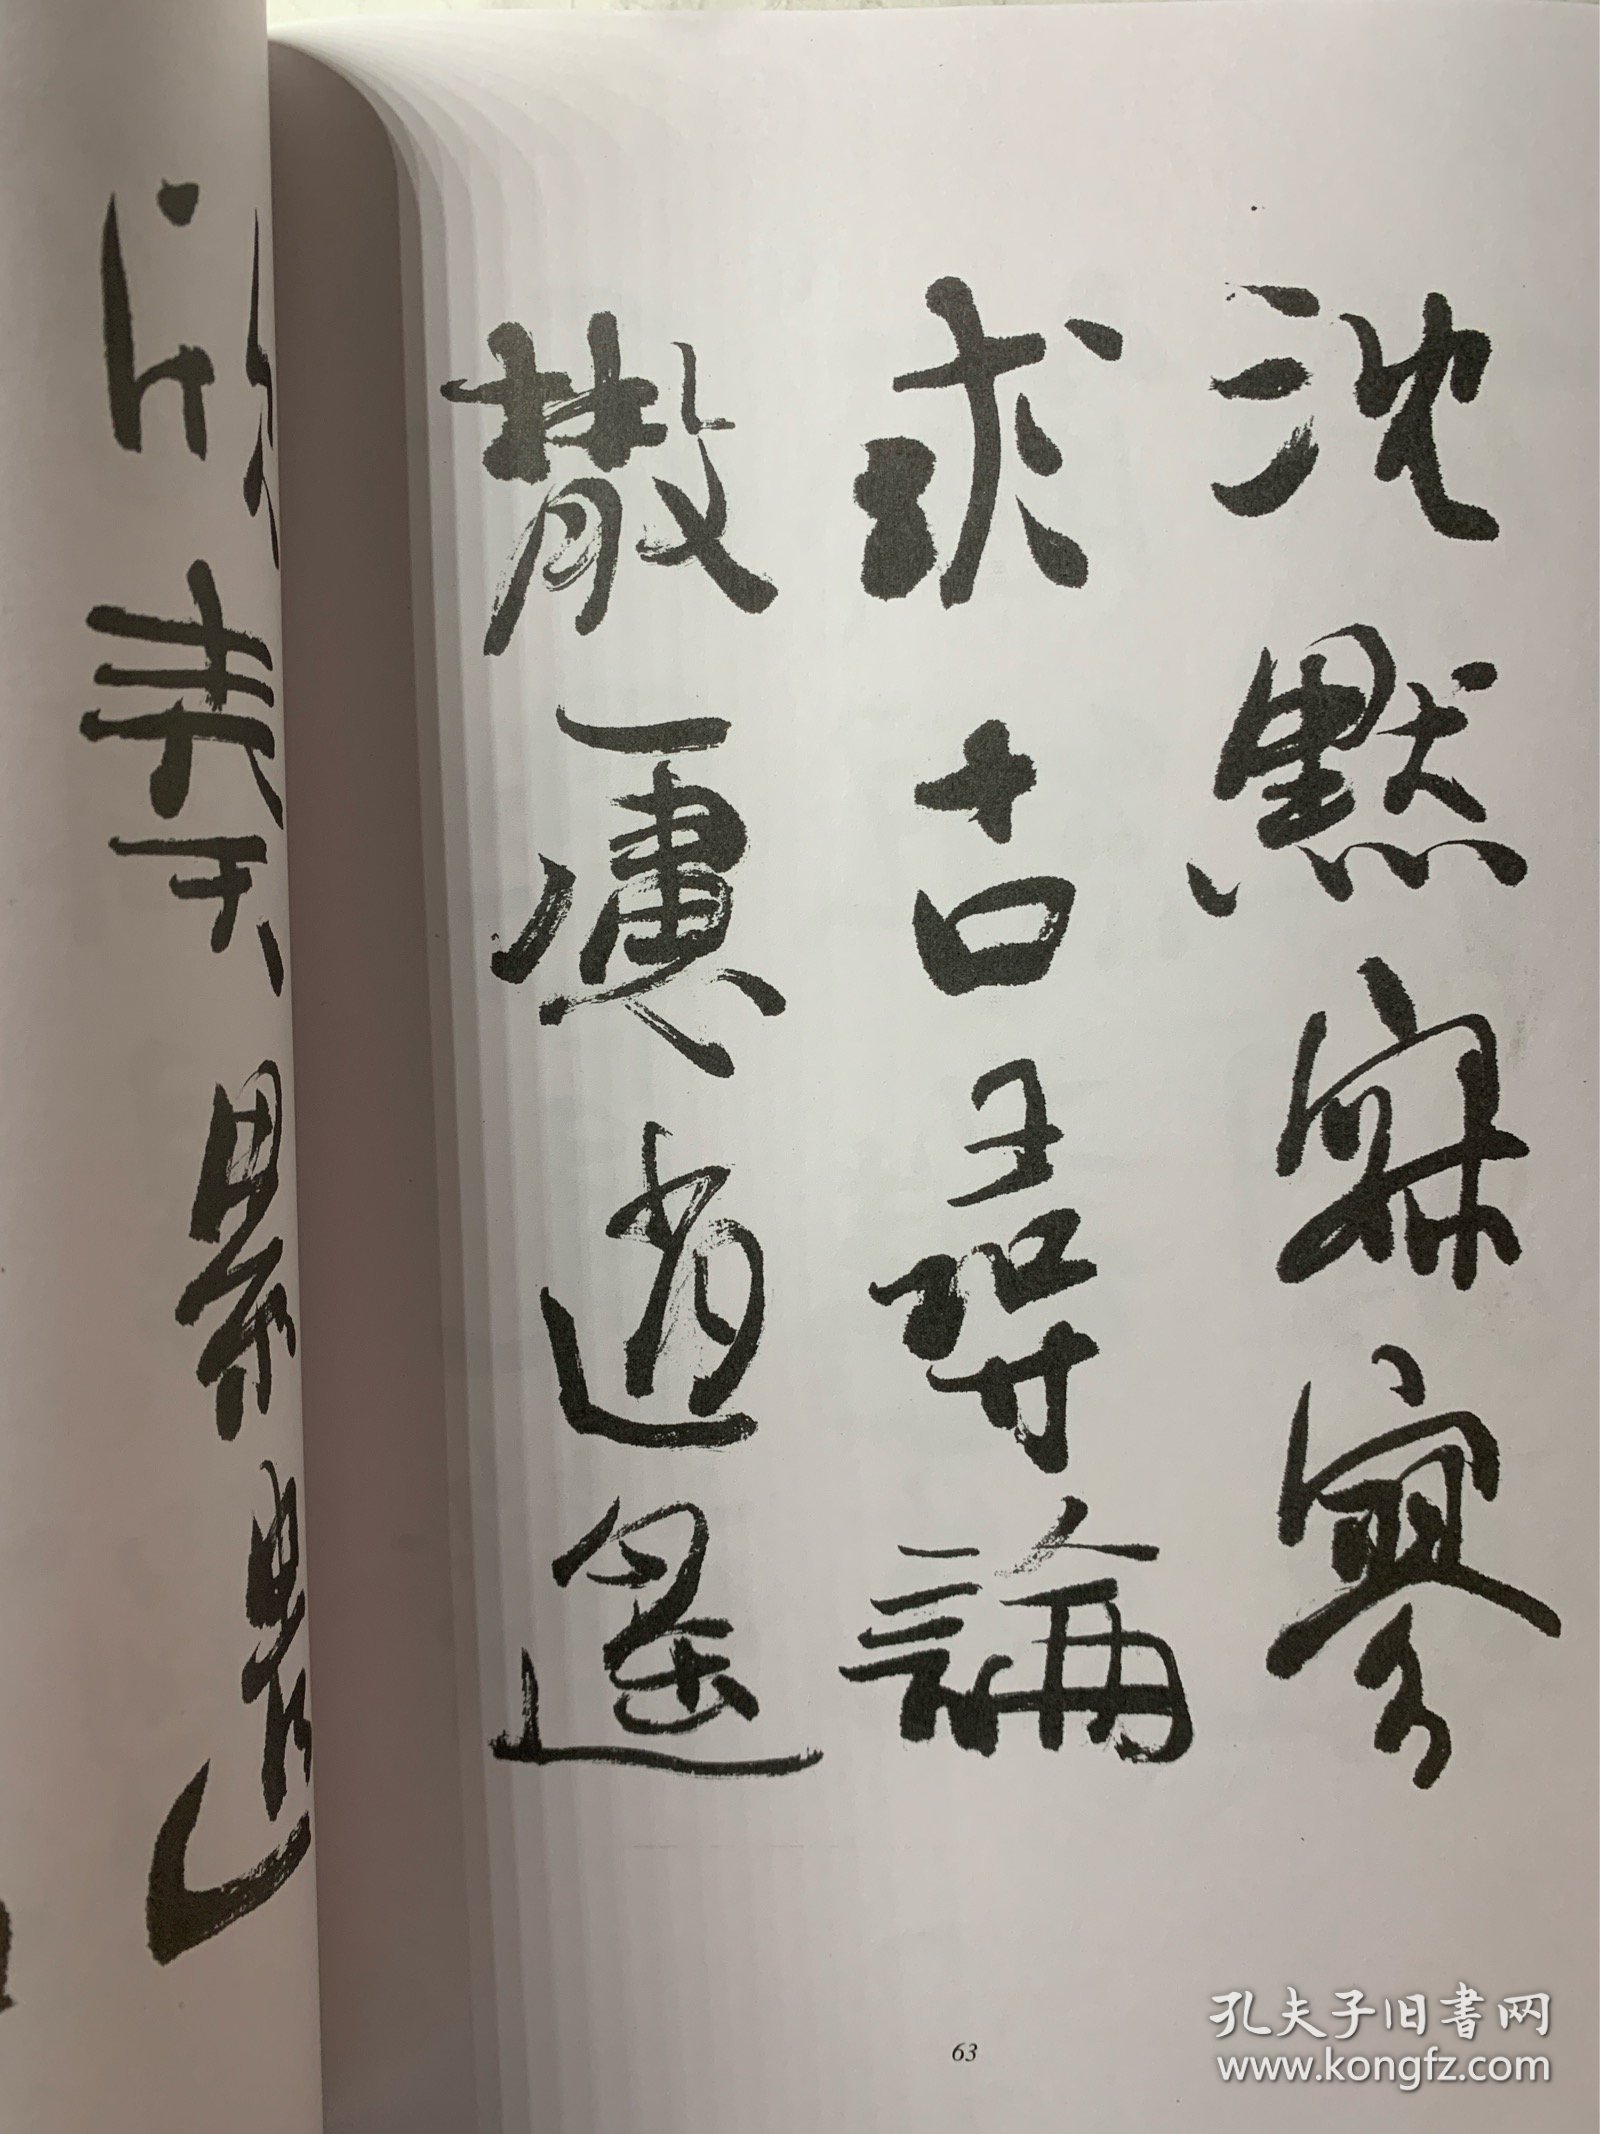 沈默寂寥
求古尋論
散慮逍遙
欣奏累遣
63
孔夫子旧书网
www.kongfz.com